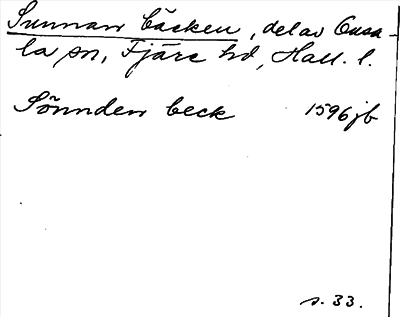 Sunnan bäcken, del av Onsa-
la sn, Fjäre hd, Hall. l.
Sönnden beck 1596 jb
s. 33.